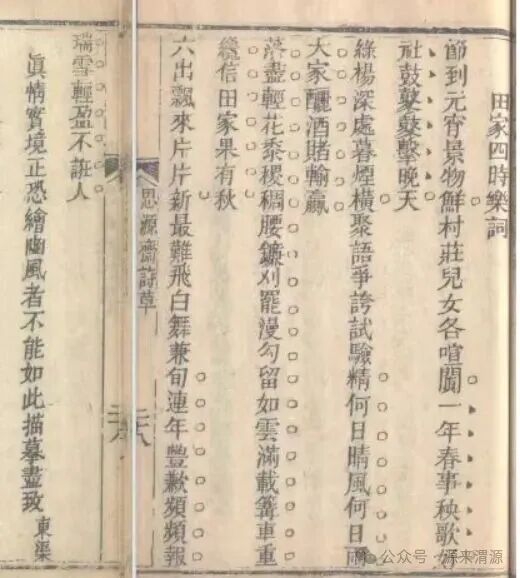 田家四時樂詞
節到元宵景物鮮村莊兒女各喧闐一年春事秧歌
社鼓鼕鼕擊晚天
綠楊深處暮煙橫聚語爭誇試驗精何日晴風何日雨
大家釃酒賭輸贏
落盡輕花黍稷稠腰鐮刈罷漫勾留如雲滿載篝車重
纔信田家果有秋
六出飄來片片新最難飛白舞兼旬連年豐歉頻頻報
思源齋詩草
瑞雪輕盈不誑人
眞情實境正恐繪豳風者不能如此描摹盡致 東渠
公众号 · 源来渭源